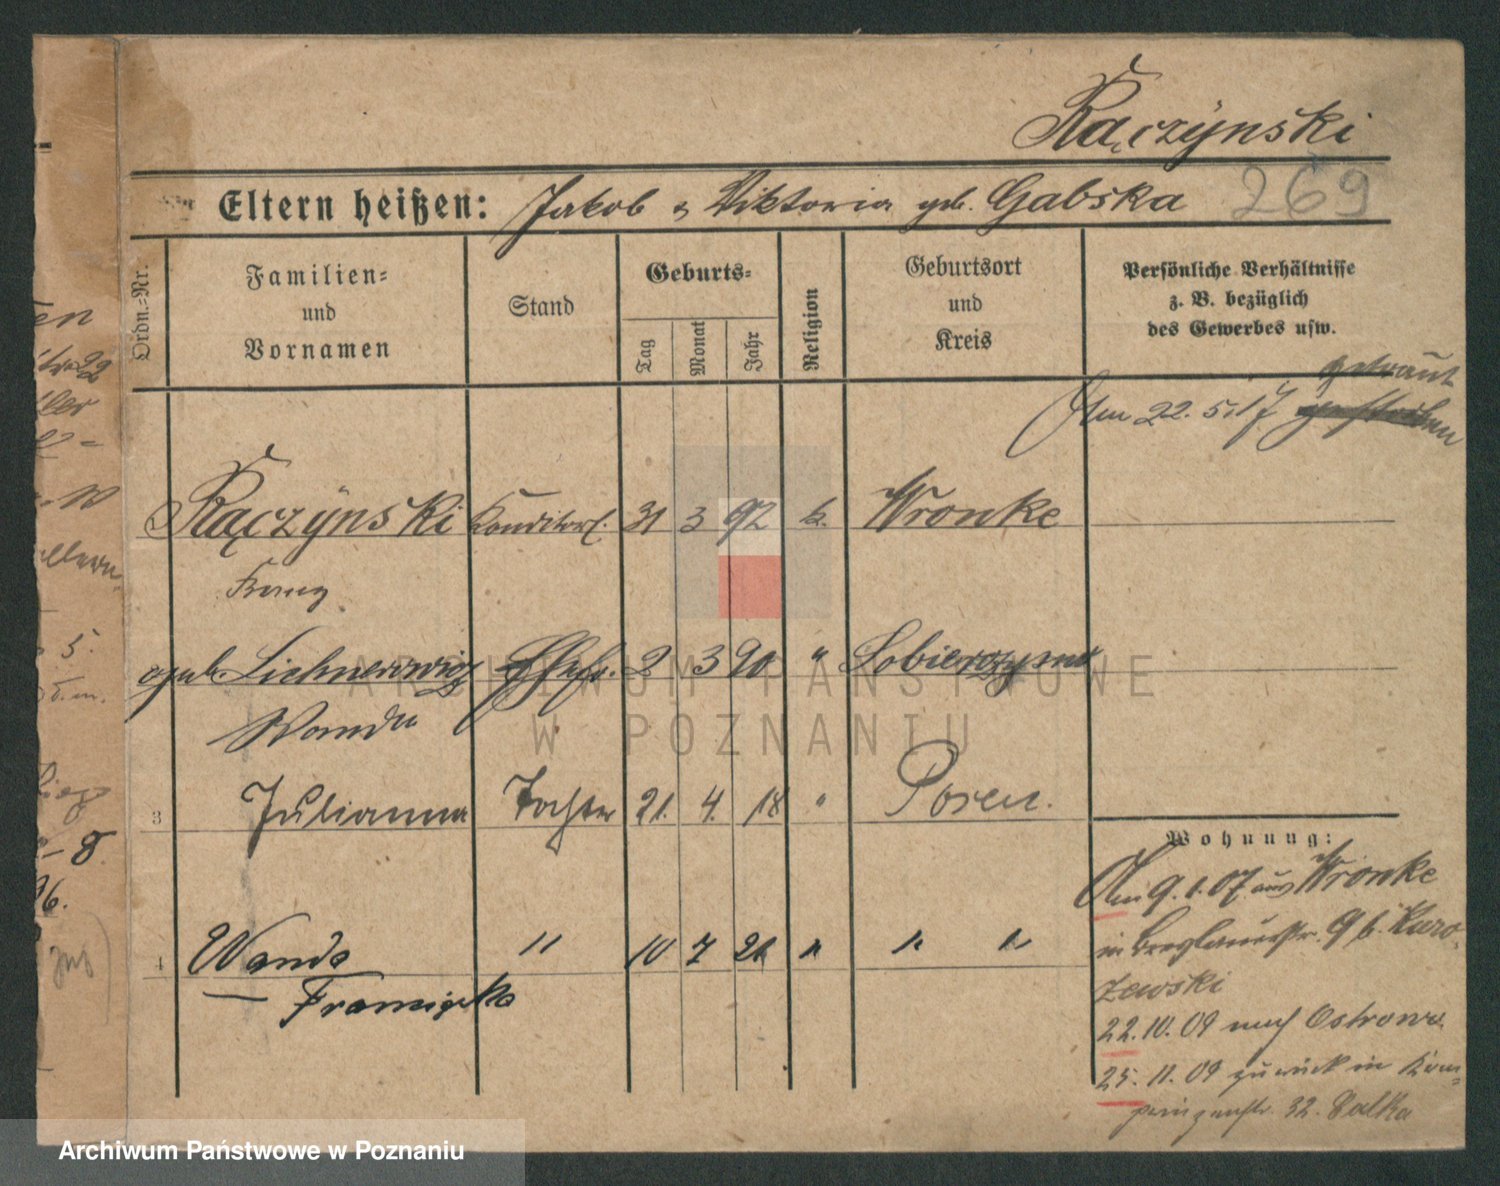 Rączynski
Eltern heißen: Jakob & Viktoria geb. Gabska 269
Ordn.=Nr.
Familien=
und
Vornamen
Stand
Geburts=
Tag
Monat
Jahr
Religion
Geburtsort
und
Kreis
Persönliche Verhältnisse
z. B. bezüglich
des Gewerbes usw.
getraut
Am 22. 5. 17
1 Rączynski Konditorl. 31 3 92 k. Wronke
Franz
geb. Lichnerowicz Ehefr. 2 3 90 " Sobiersysno
Wanda
3 Julianna Tochter 21. 4. 18 " Posen.
4 Wanda " 10 7 21 " " "
— Franziska
Wohnung:
Am 9. 1. 07 aus Wronke
in Breslauerstr. 9 b. Karo-
zewski
22. 10. 09 nach Ostrowo
25. 11. 09 zurück in Kron-
prinzenstr. 32. Salka
ARCHIWUM PAŃSTWOWE
W POZNANIU
Archiwum Państwowe w Poznaniu